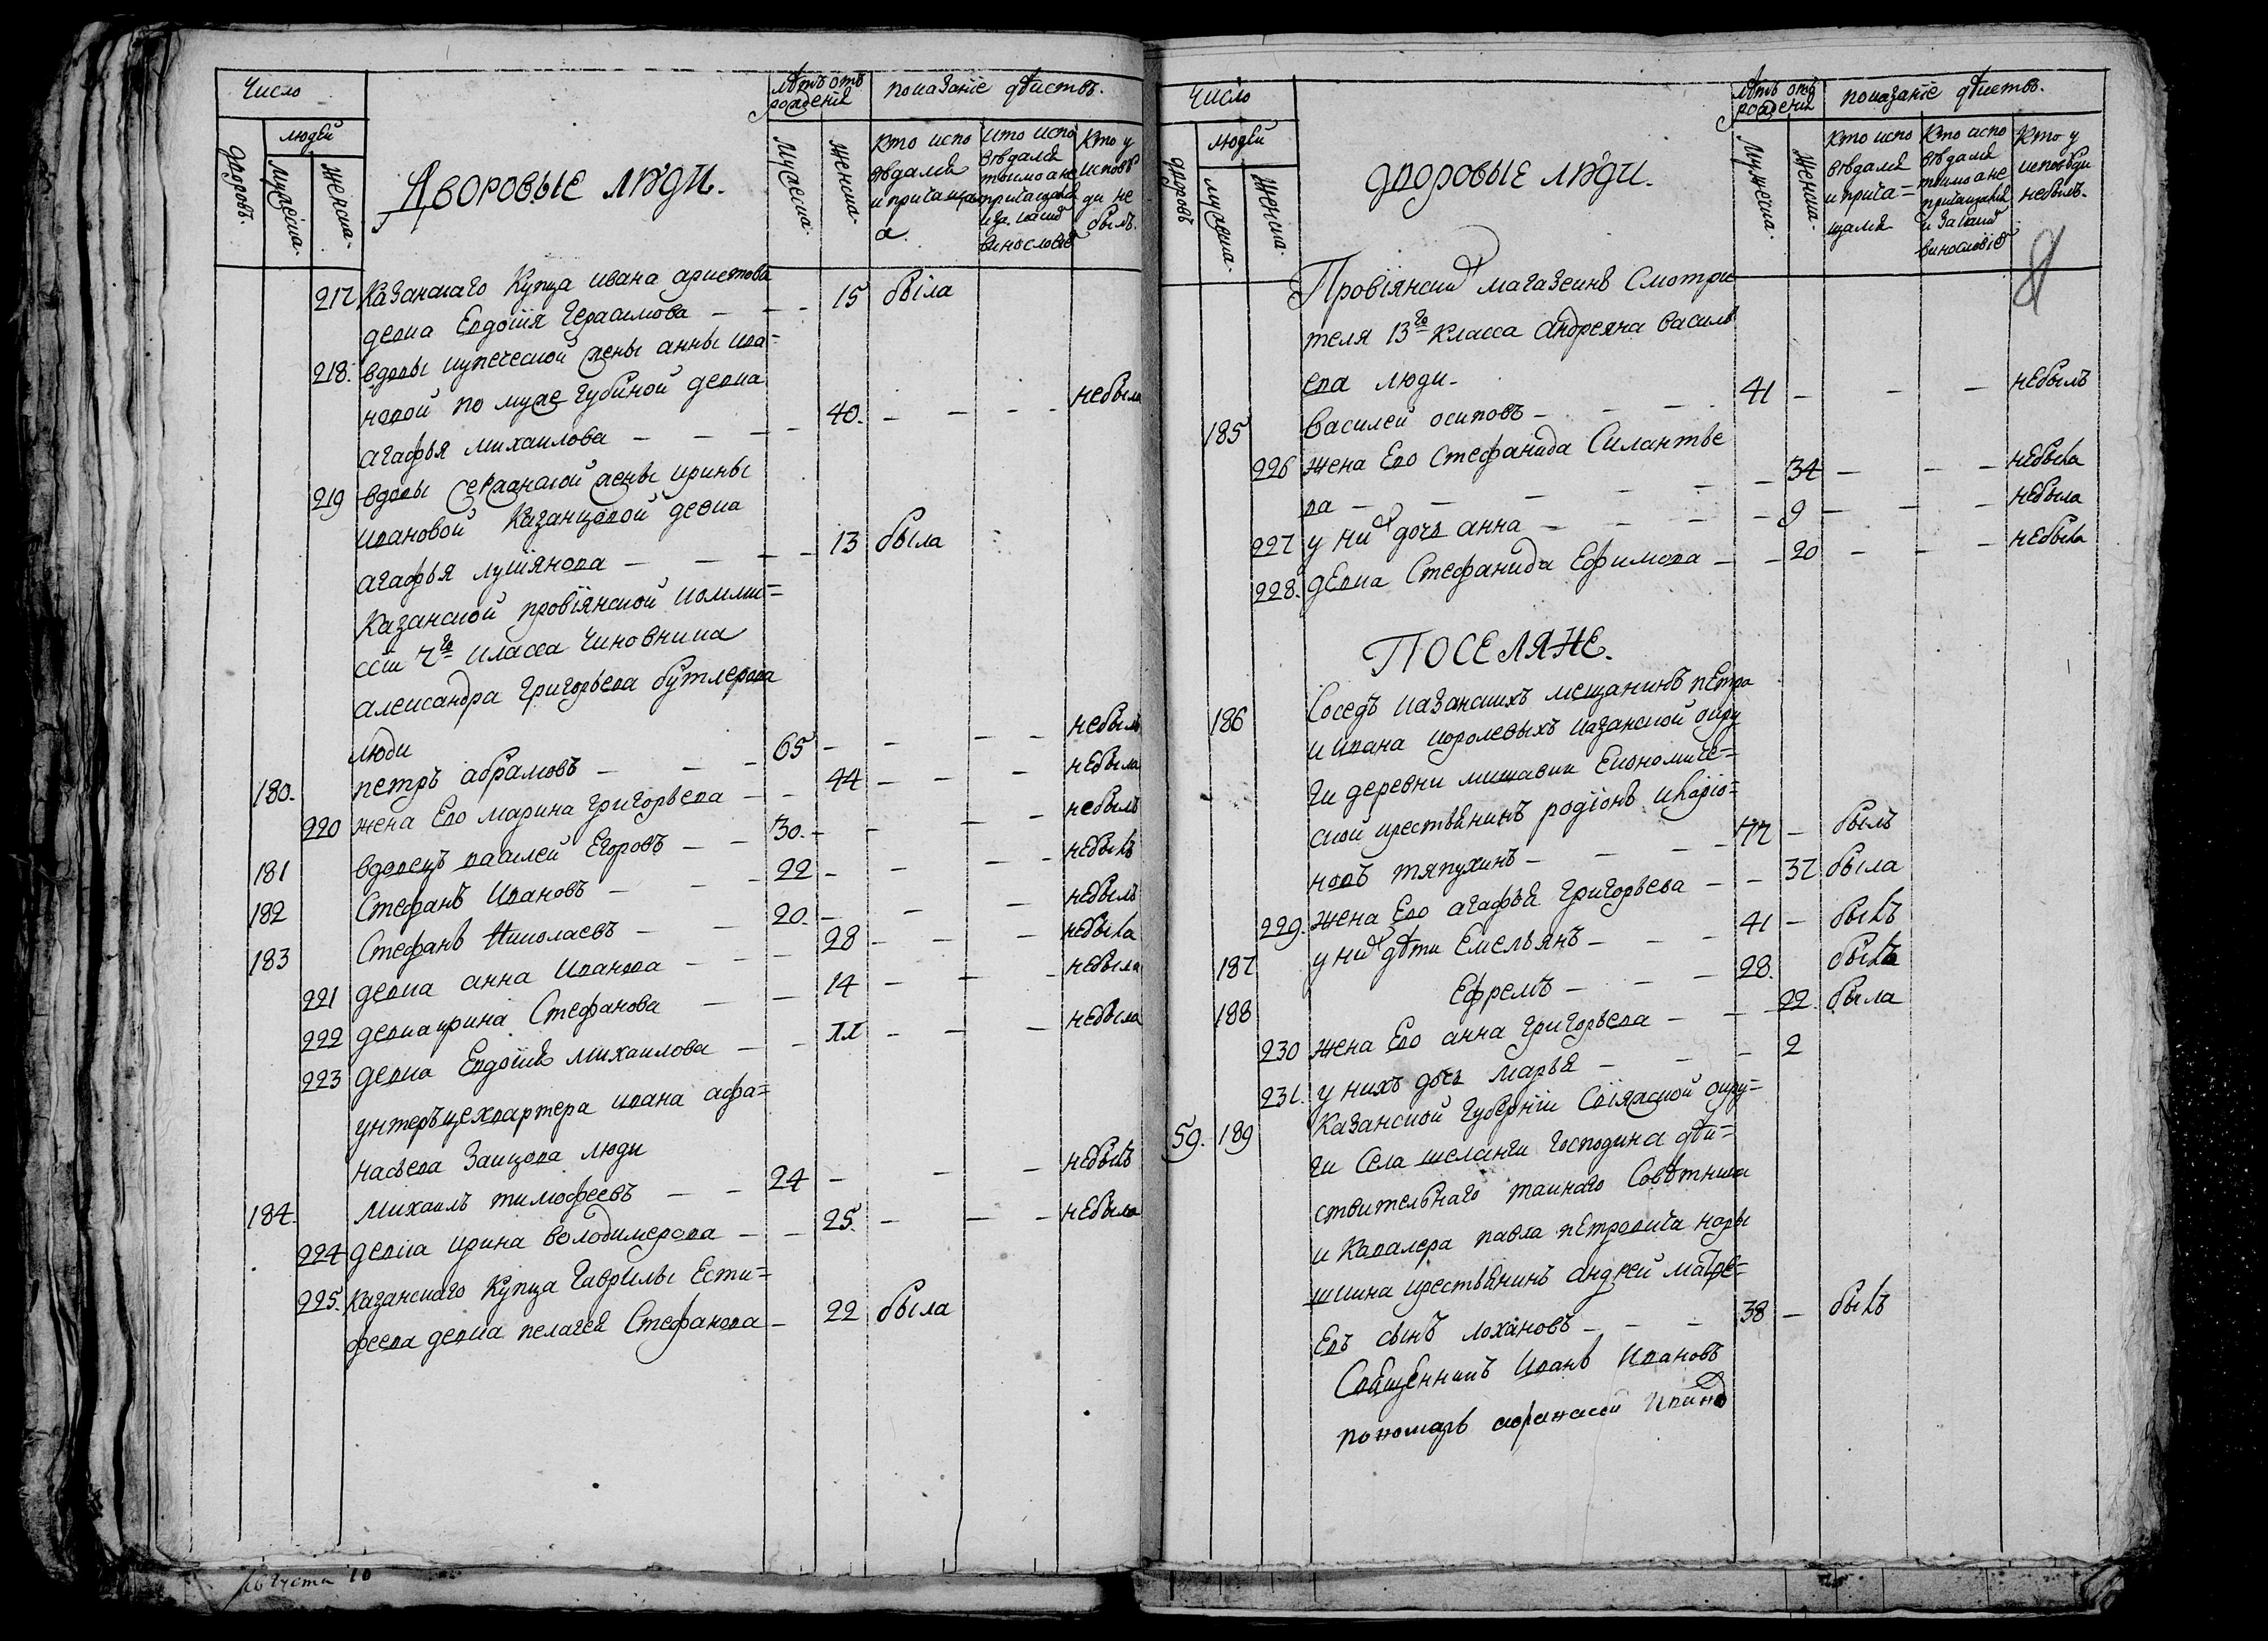 Число
людей
лѣтъ отъ рожденія
показаніе дѣиствъ.
дворовъ.
Мужеска.
Женска.
Дворовые люди.
Мужеска.
Женска.
Кто испо
вѣдался
и причащал
а.
Кто испо
вѣдался
токмо а не
причащался
и за какимъ
винословіе
Кто у
исповѣ
ди не
былъ.
217 Казанскаго Купца ивана аристова
девка Евдокія Герасимова — 15 была
218. вдовы купеческой жены анны ива=
новой по муже Губиной девка
агафья михаилова — 40. — небыла
219 вдовы сержанской жены ирины
ивановой Казанцовой девка
агафья лукіянова — 13 была
Казанской провіянской комми=
ссіи 7го класса чиновника
александра григорьева бутлерова
люди
180. петръ абрамовъ — 65 — небылъ
220 жена Ево марина григорьева — 44 — небыла
181 вдовецъ василей Егоровъ — 30. — небылъ
182 Стефанъ Ивановъ — 22 — небылъ
183 Стефанъ Николаевъ — 20. — небылъ
221 девка анна Иванова — 28 — небыла
222 девка ирина Стефанова — 14 — небыла
223 девка Евдокія михаилова — 11 — небыла
унтеръ цехвартера ивана афа=
насьева Заицова люди
184. Михаилъ тимофеевъ — 24 — небылъ
224 девка ирина володимерова — 25. — небыла
225. Казанскаго Купца Гаврилы Ести=
феева девка пелагея Стефанова — 22 была
августа 10
Число
людей
лѣтъ отъ рожденія
показаніе дѣиствъ.
дворовъ
мужеска.
Женска.
дворовые люди.
Мужеска.
Женска.
Кто испо
вѣдался
и прича=
щался
Кто испо
вѣдался
токмо а не
причащался
и за какимъ
винословіе
Кто у
исповѣди
небылъ.
Провіянскихъ магазеинъ Смотри
теля 13го класса андреяна василь
ева люди.
185 василей осиповъ — 41 — небылъ
226 жена Ево Стефанида Силантье
ва — 34 — небыла
227 у них дочь анна — 9 — небыла
228. девка Стефанида Ефимова — 20 — небыла
ПОСЕЛЯНЕ.
186 Соседъ казанскихъ мещанинъ петра
и ивана королевыхъ казанской окру
ги деревни мишавки Економиче=
ской крестьянинъ родіонъ иларіо=
новъ тяпухинъ — 77 — былъ
229. жена Ево агафья Григорьева — 37 была
187 у них дѣти Емельянъ — 41 — былъ
188 Ефремъ — 28. былъ
230 жена Ево анна григорьева — 22 была
231. у нихъ дочь марья — 2
59. 189 Казанской губерніи Свіяжской окру=
ги Села шеланги господина дѣи=
ствительнаго таинаго Совѣтника
и Кавалера павла петровича нары
шкина крестьянинъ андреи матфе=
евъ сынъ лохановъ — 38 — былъ
Священникъ Иванъ Ивановъ
пономарь афанасей Ивановъ